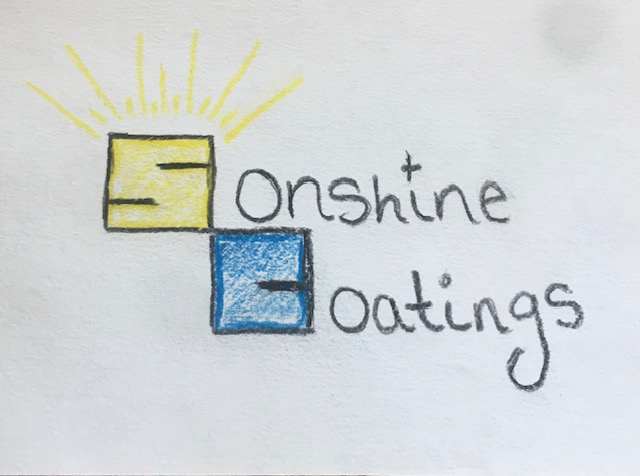 Sonshine
Coatings